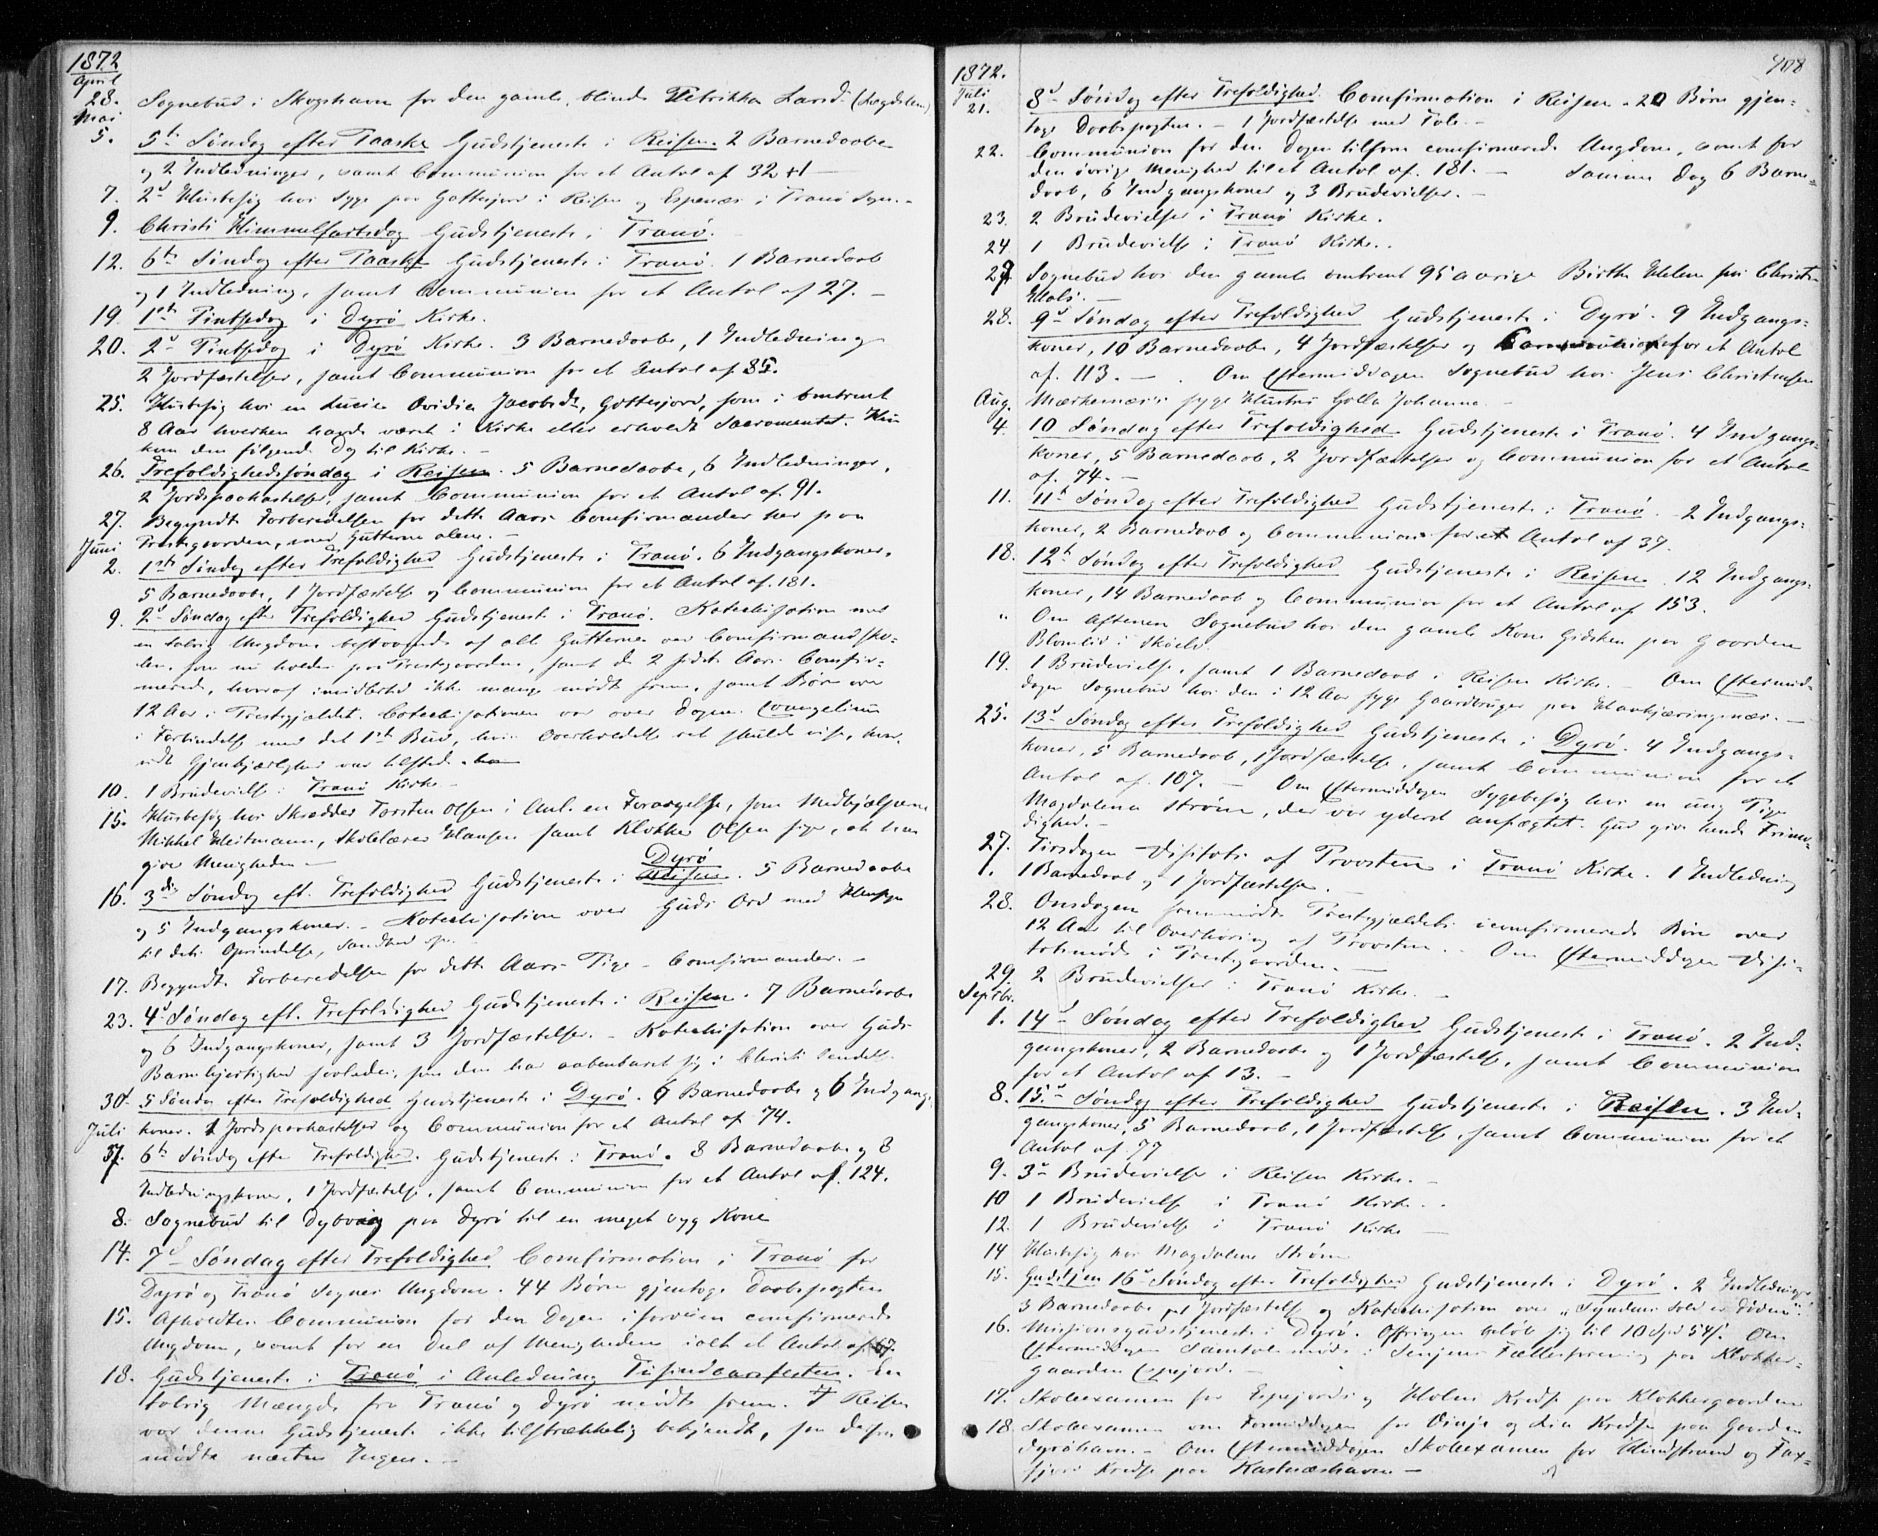 1872
April
28. Sognebud i Skogshavn for den gamle, blinde Petrikka Larsd. (Lægdslem)
Mai
5. 5te Søndag efter Paaske Gudstjeneste i Reisen. 2 Barnedaabe
og 2 Indledninger, samt Communion for et Antal af 32
7. 2d Husbesøg hos Syge paa Gottesjord i Reisen og Espenæs i Tranø Sogn.
9. Christi Himmelfartsdag Gudstjeneste i Tranø.
12. 6te Søndag efter Paaske Gudstjeneste i Tranø. 1 Barnedaab
og 1 Indledning, samt Communion for et Antal af 27. –
19. 1ste Pintsedag i Dyrø Kirke.
20. 2d Pintsedag i Dyrø Kirke. 3 Barnedaabe, 1 Indledning
2 Jordfæstelser, samt Communion for et Antal af 85.
25. Husbesøg hos en Lucie Ovidia Jacobsdr, Gottesjord, som i omtrent
8 Aar hverken havde været i Kirke eller erholdt Sacramentet. Hun
kom den følgende Dag til Kirke. –
26. Trefoldighedssøndag i Reisen. 5 Barnedaabe, 6 Indledninger,
2 Jordspaakastelser, samt Communion for et Antal af 91.
27. Begyndte Forberedelsen for dette Aars Comfirmander her paa
Præstegaarden, med Gutterne alene. –
Juni
2. 1ste Søndag efter Trefoldighed Gudstjeneste i Tranø. 6 Indgangskoner,
5 Barnedaabe, 1 Jordfæstelse og Communion for et Antal af 181.
9. 2d Søndag eft. Trefoldighed Gudstjeneste i Tranø. Katechisation med
en talrig Ungdom bestaaende af alle Gutterne ved Comfirmandsko-
len, som nu holdes paa Præstegaarden, samt de 2 sidste Aars Comfir-
merede, hvoraf imidlertid ikke mange mødte frem, samt Børn over
12 Aar i Præstegjældet. Catechisationen var over Dagens Evangelium
i Forbindelse med det 1ste Bud, hvis Overholdelse vel skulde vise, hvor-
vidt Gjenkjærlighed var tilsted.
10. 1 Brudevielse i Tranø Kirke –
15. Husbesøg hos Skrædder Torsten Olsen i Anl. en Forargelse, som Medhjælperne
Mikkel Heitmann, Skolelærer Hansen samt Klokker Olsen sige, at han
giver Menigheden –
16. 3die Søndag eft. Trefoldighed Gudstjeneste i Dyrø. 5 Barnedaabe
og 5 Indgangskoner. – Katechisation over Guds Ord med Hensyn
til dets Oprindelse, Sandhed osv.
17. Begyndte Forberedelsen for dette Aars Pige-Comfirmander. –
23. 4d Søndag eft. Trefoldighed Gudstjeneste i Reisen. 7 Barnedaabe
og 6 Indgangskoner, samt 3 Jordfæstelser. – Katechisation over Guds
Barmhjertighed saaledes, som den har aabenbaret sig i Christi Sendelse.
30. 5 Søndag efter Trefoldighed Gudstjeneste i Dyrø. 6 Barnedaabe og 6 Indgangs-
Juli
koner. 1 Jordspaakastelser og Communion for et Antal af 74.
7. 6te Søndag efter Trefoldighed. Gudstjeneste i Tranø. 8 Barnedaabe og 8
Indledningskoner, 1 Jordfæstelse, samt Communion for et Antal af 124.
8. Sognebud til Dybvaag paa Dyrø til en meget syg Kone
14. 7d Søndag efter Trefoldighed Comfirmation i Tranø for
Dyrø og Tranø Sognes Ungdom. 44 Børn gjentoge Daabspagten
15. Afholdtes Communion for den Dagen iforveien comfirmerede
Ungdom, samt for en Deel af Menigheden ialt et Antal af 67.
18. Gudstjeneste i Tranø i Anledning Tusindaarsfesten. En
talrig Mængde fra Tranø og Dyrø mødte frem. I Reisen
var denne Gudstjeneste ikke tilstrækkelig bekjendt, saa derfra
mødte næsten Ingen. –

408
1872.
Juli
21. 8d Søndag efter Trefoldighed Comfirmation i Reisen. 20 Børn gjen-
toge Daabspagten. – 1 Jordfæstelse med Tale. –
22. Communion for den Dagen tilforn comfirmerede Ungdom, samt for
den øvrige Menighed til et Antal af 181. – Samme Dag 6 Barne-
daab, 6 Indgangskoner og 3 Brudevielser. –
23. 2 Brudevielser i Tranø Kirke.
24. 1 Brudevielse i Tranø Kirke.
27. Sognebud hos den gamle omtrent 95 aarige Birthe Helene

28. 9d Søndag efter Trefoldighed Gudstjeneste i Dyrø. 9 Indgangs-
koner, 10 Barnedaabe, 4 Jordfæstelser og Communion for et Antal
af 113. – Om Eftermiddagen Sognebud hos Jens Christensen
Aug. Mærkenæs's syge Hustru Golla Johanna. –
4. 10 Søndag efter Trefoldighed Gudstjeneste i Tranø. 4 Indgangs-
koner, 5 Barnedaab, 2 Jordfæstelser og Communion for et Antal
af 74. –
11. 11te Søndag efter Trefoldighed Gudstjeneste i Tranø. 2 Indgangs-
koner, 2 Barnedaab og Communion for et Antal af 37.
18. 12te Søndag efter Trefoldighed Gudstjeneste i Reisen. 12 Indgangs-
koner, 14 Barnedaab og Communion for et Antal af 153.
" Om Aftenen Sognebud hos den gamle Kone Gidsken paa Gaarden
Blomlid i Skøelv.
19. 1 Brudevielse, samt 1 Barnedaab i Reisen Kirke. – Om Eftermid-
dagen Sognebud hos den i 12 Aar syge Gaardbruger paa Havkjæringnæs. –
25. 13d Søndag efter Trefoldighed Gudstjeneste i Dyrø. 4 Indgangs-
koner, 5 Barnedaab, 1 Jordfæstelse, samt Communion for et
Antal af 107. – Om Eftermiddagen Sygebesøg hos en ung Pige
Magdalena Strøm, der var yderst anfægtet. Gud give hende Frimo-
dighed. –
27. Tirsdagen Visitats af Provsten i Tranø Kirke. 1 Indledning
1. 1 Barnedaab og 1 Jordfæstelse.
28. Onsdagen fremmødte Præstegjældets icomfirmerede Børn over
12 Aar til Overhøring af Provsten. – Om Eftermiddagen Visi-
tatsmøde i Præstegaarden. –
29. 2 Brudevielser i Tranø Kirke. –
Septbr.
1. 14d Søndag efter Trefoldighed Gudstjeneste i Tranø. 2 Ind-
gangskoner, 2 Barnedaabe og 1 Jordfæstelse, samt Communion
for et Antal af 13. –
8. 15d Søndag efter Trefoldighed Gudstjeneste i Reisen. 3 Ind-
gangskoner, 5 Barnedaab, 1 Jordfæstelse, samt Communion for et
Antal af 77
9. 3d Brudevielse i Reisen Kirke. –
10 1 Brudevielse i Tranø Kirke. .
12. 1 Brudevielse i Tranø Kirke –
14 Husbesøg hos Magdalene Strøm
15. 16d Søndag efter Trefoldighed Gudstjeneste i Dyrø. 2 Indledninger
3 Barnedaabe 1 Jordfæstelse og Katechisation over "Syndens Sold er Døden".
16. Missionsgudstjeneste i Dyrø. Offringen beløb sig til 10 Spd 54 s. Om
Eftermiddagen Samtalemøde i Senjens Fællesforening paa Klokker-
gaarden Espejord. –
17. Skoleexamen for Espejords og Holms Kreds paa Klokkergaarden
18. Skoleexamen om Formiddagen for Vinje og Lia Kreds paa Gaarden
Dyrøhavn. – Om Eftermiddagen Skoleexamen for Hundstrand og Fax-
fjord Kreds paa Kastnæshavn –